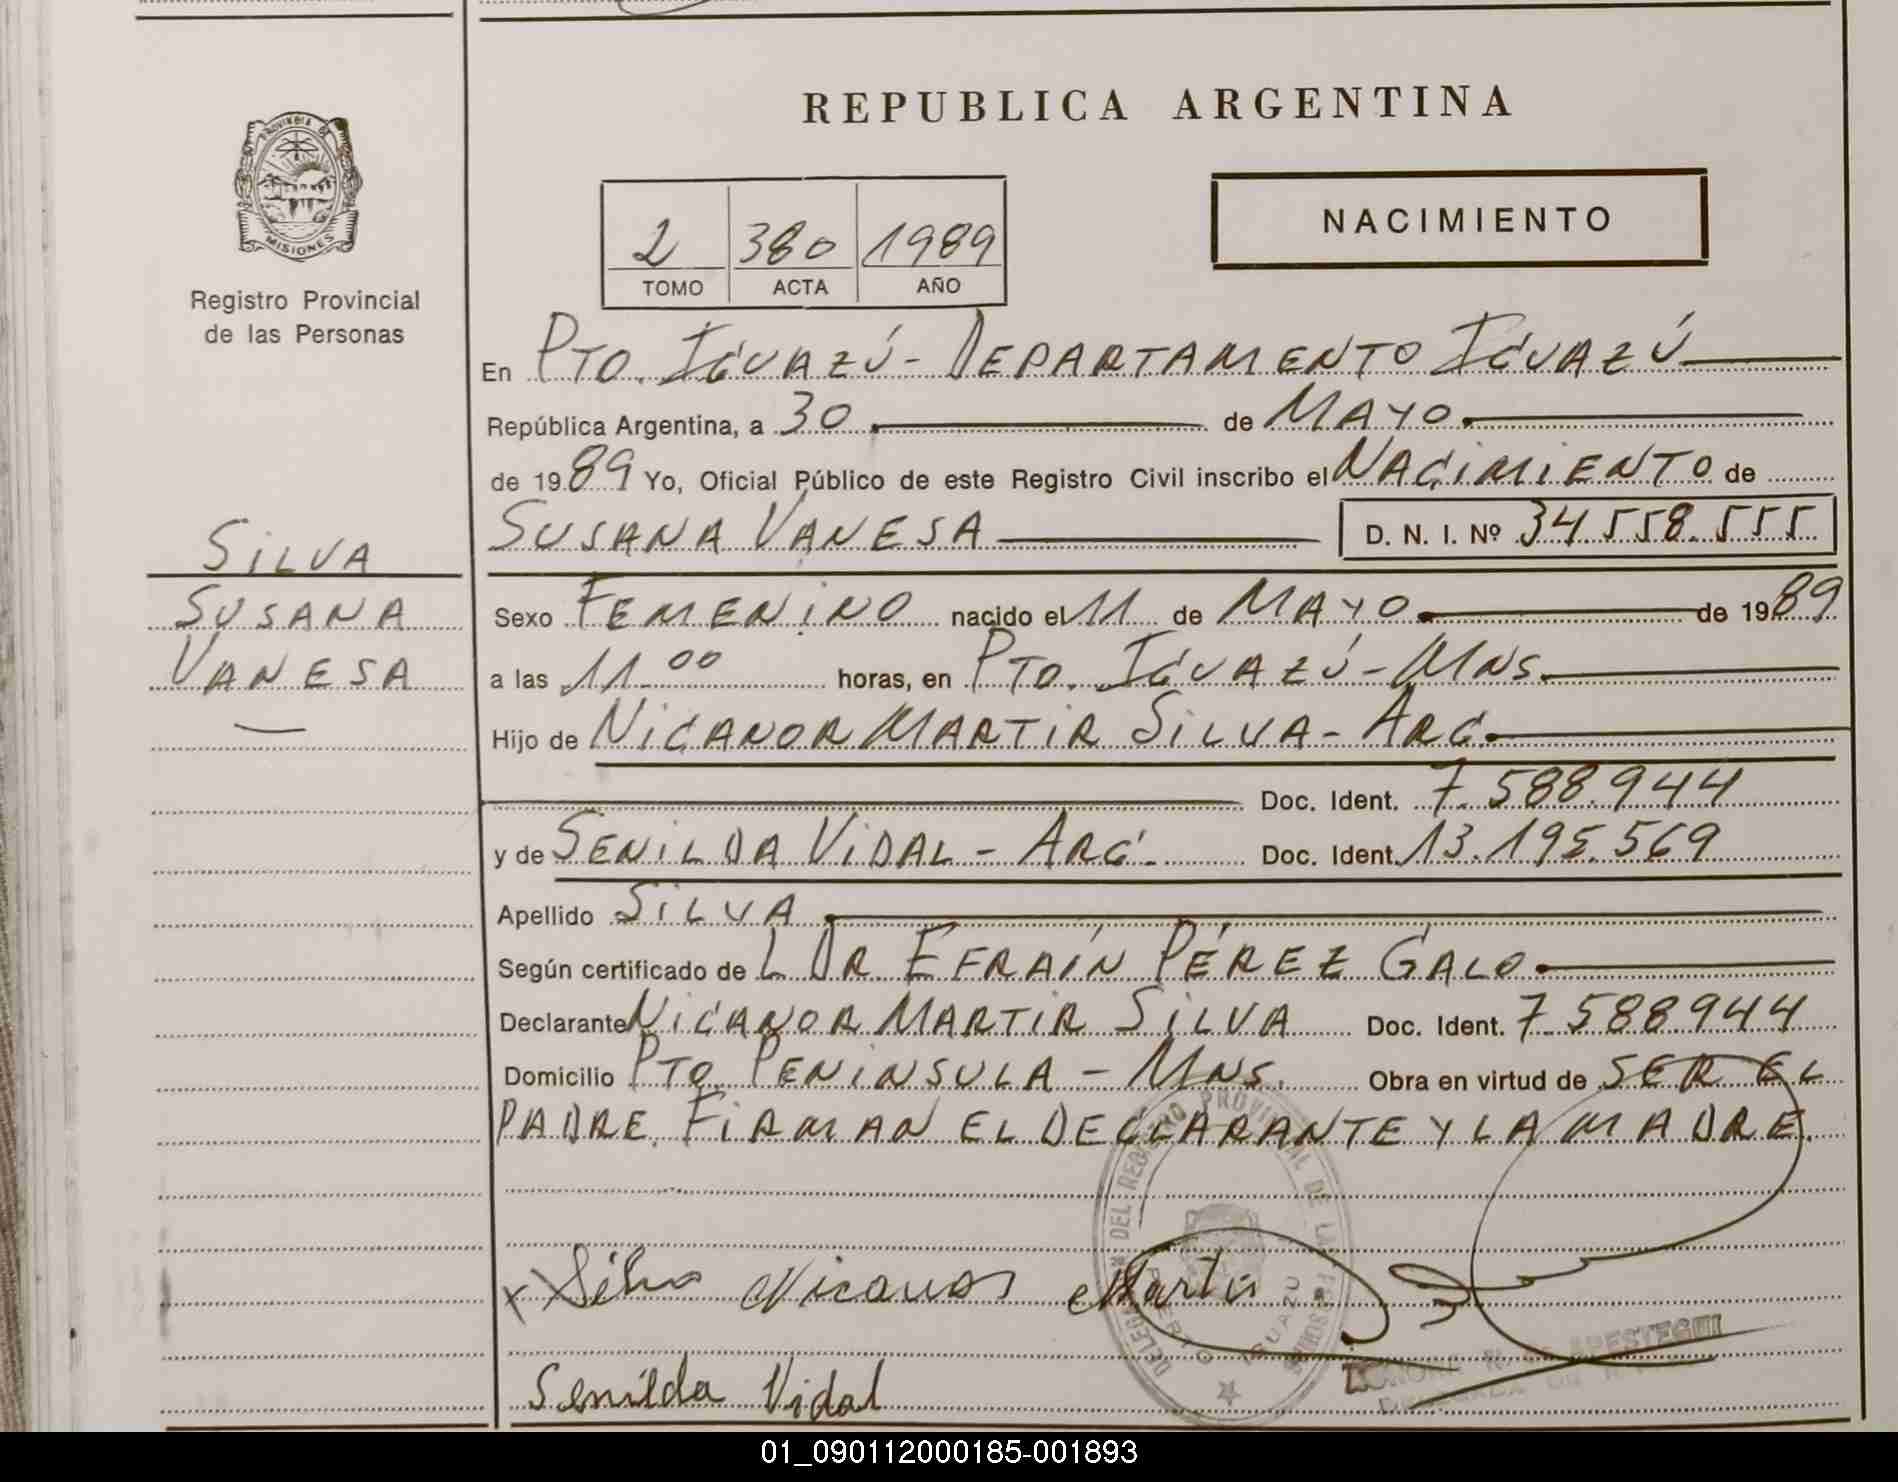 REPUBLICA ARGENTINA
PROVINCIA DE
MISIONES
Registro Provincial
de las Personas
2 380 1989
TOMO ACTA AÑO
NACIMIENTO
En PTO. IGUAZÚ - DEPARTAMENTO IGUAZÚ
República Argentina, a 30 de MAYO
de 1989 Yo, Oficial Público de este Registro Civil inscribo el NACIMIENTO de
SUSANA VANESA D. N. I. Nº 34.558.555
SILVA
SUSANA
VANESA
Sexo FEMENINO nacido el 11 de MAYO de 1989
a las 11 00 horas, en PTO. IGUAZÚ - MNS.
Hijo de NICANOR MARTIR SILVA - ARG.
Doc. Ident. 7.588.944
y de SENILDA VIDAL - ARG. Doc. Ident. 13.195.569
Apellido SILVA
Según certificado de L DR. EFRAÍN PÉREZ GALO
Declarante NICANOR MARTIR SILVA Doc. Ident. 7.588.944
Domicilio PTO. PENINSULA - MNS. Obra en virtud de SER EL
PADRE. FIRMAN EL DECLARANTE Y LA MADRE.
DEL REGISTRO PROVINCIAL DE LAS PERSONAS
PUERTO IGUAZU
x Silva Nicanor Martir
Senilda Vidal
01_090112000185-001893